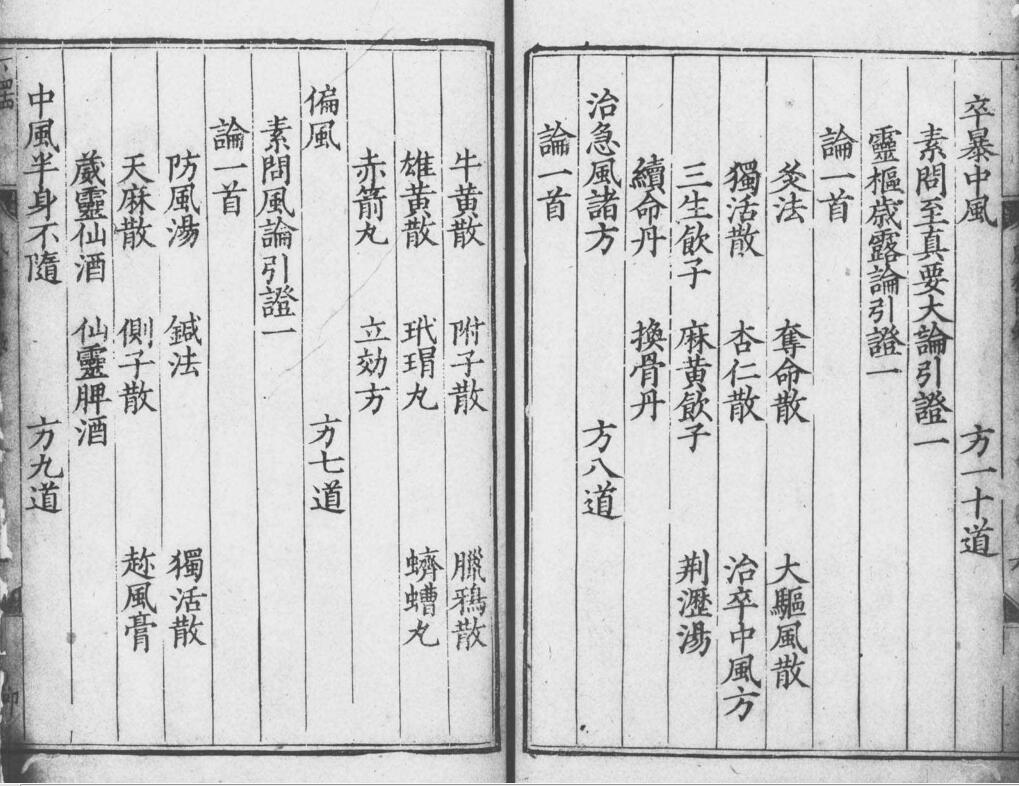 卒暴中風 方一十道
素問至真要大論引證一
靈樞歲露論引證一
論一首
灸法 奪命散 大驅風散
獨活散 杏仁散 治卒中風方
三生飲子 麻黃飲子 荆瀝湯
續命丹 換骨丹
治急風諸方 方八道
論一首
牛黃散 附子散 臘鴉散
雄黃散 玳瑁丸 蠐螬丸
赤箭丸 立効方
偏風 方七道
素問風論引證一
論一首
防風湯 鍼法 獨活散
天麻散 側子散 趂風膏
葳靈仙酒 仙靈脾酒
中風半身不隨 方九道